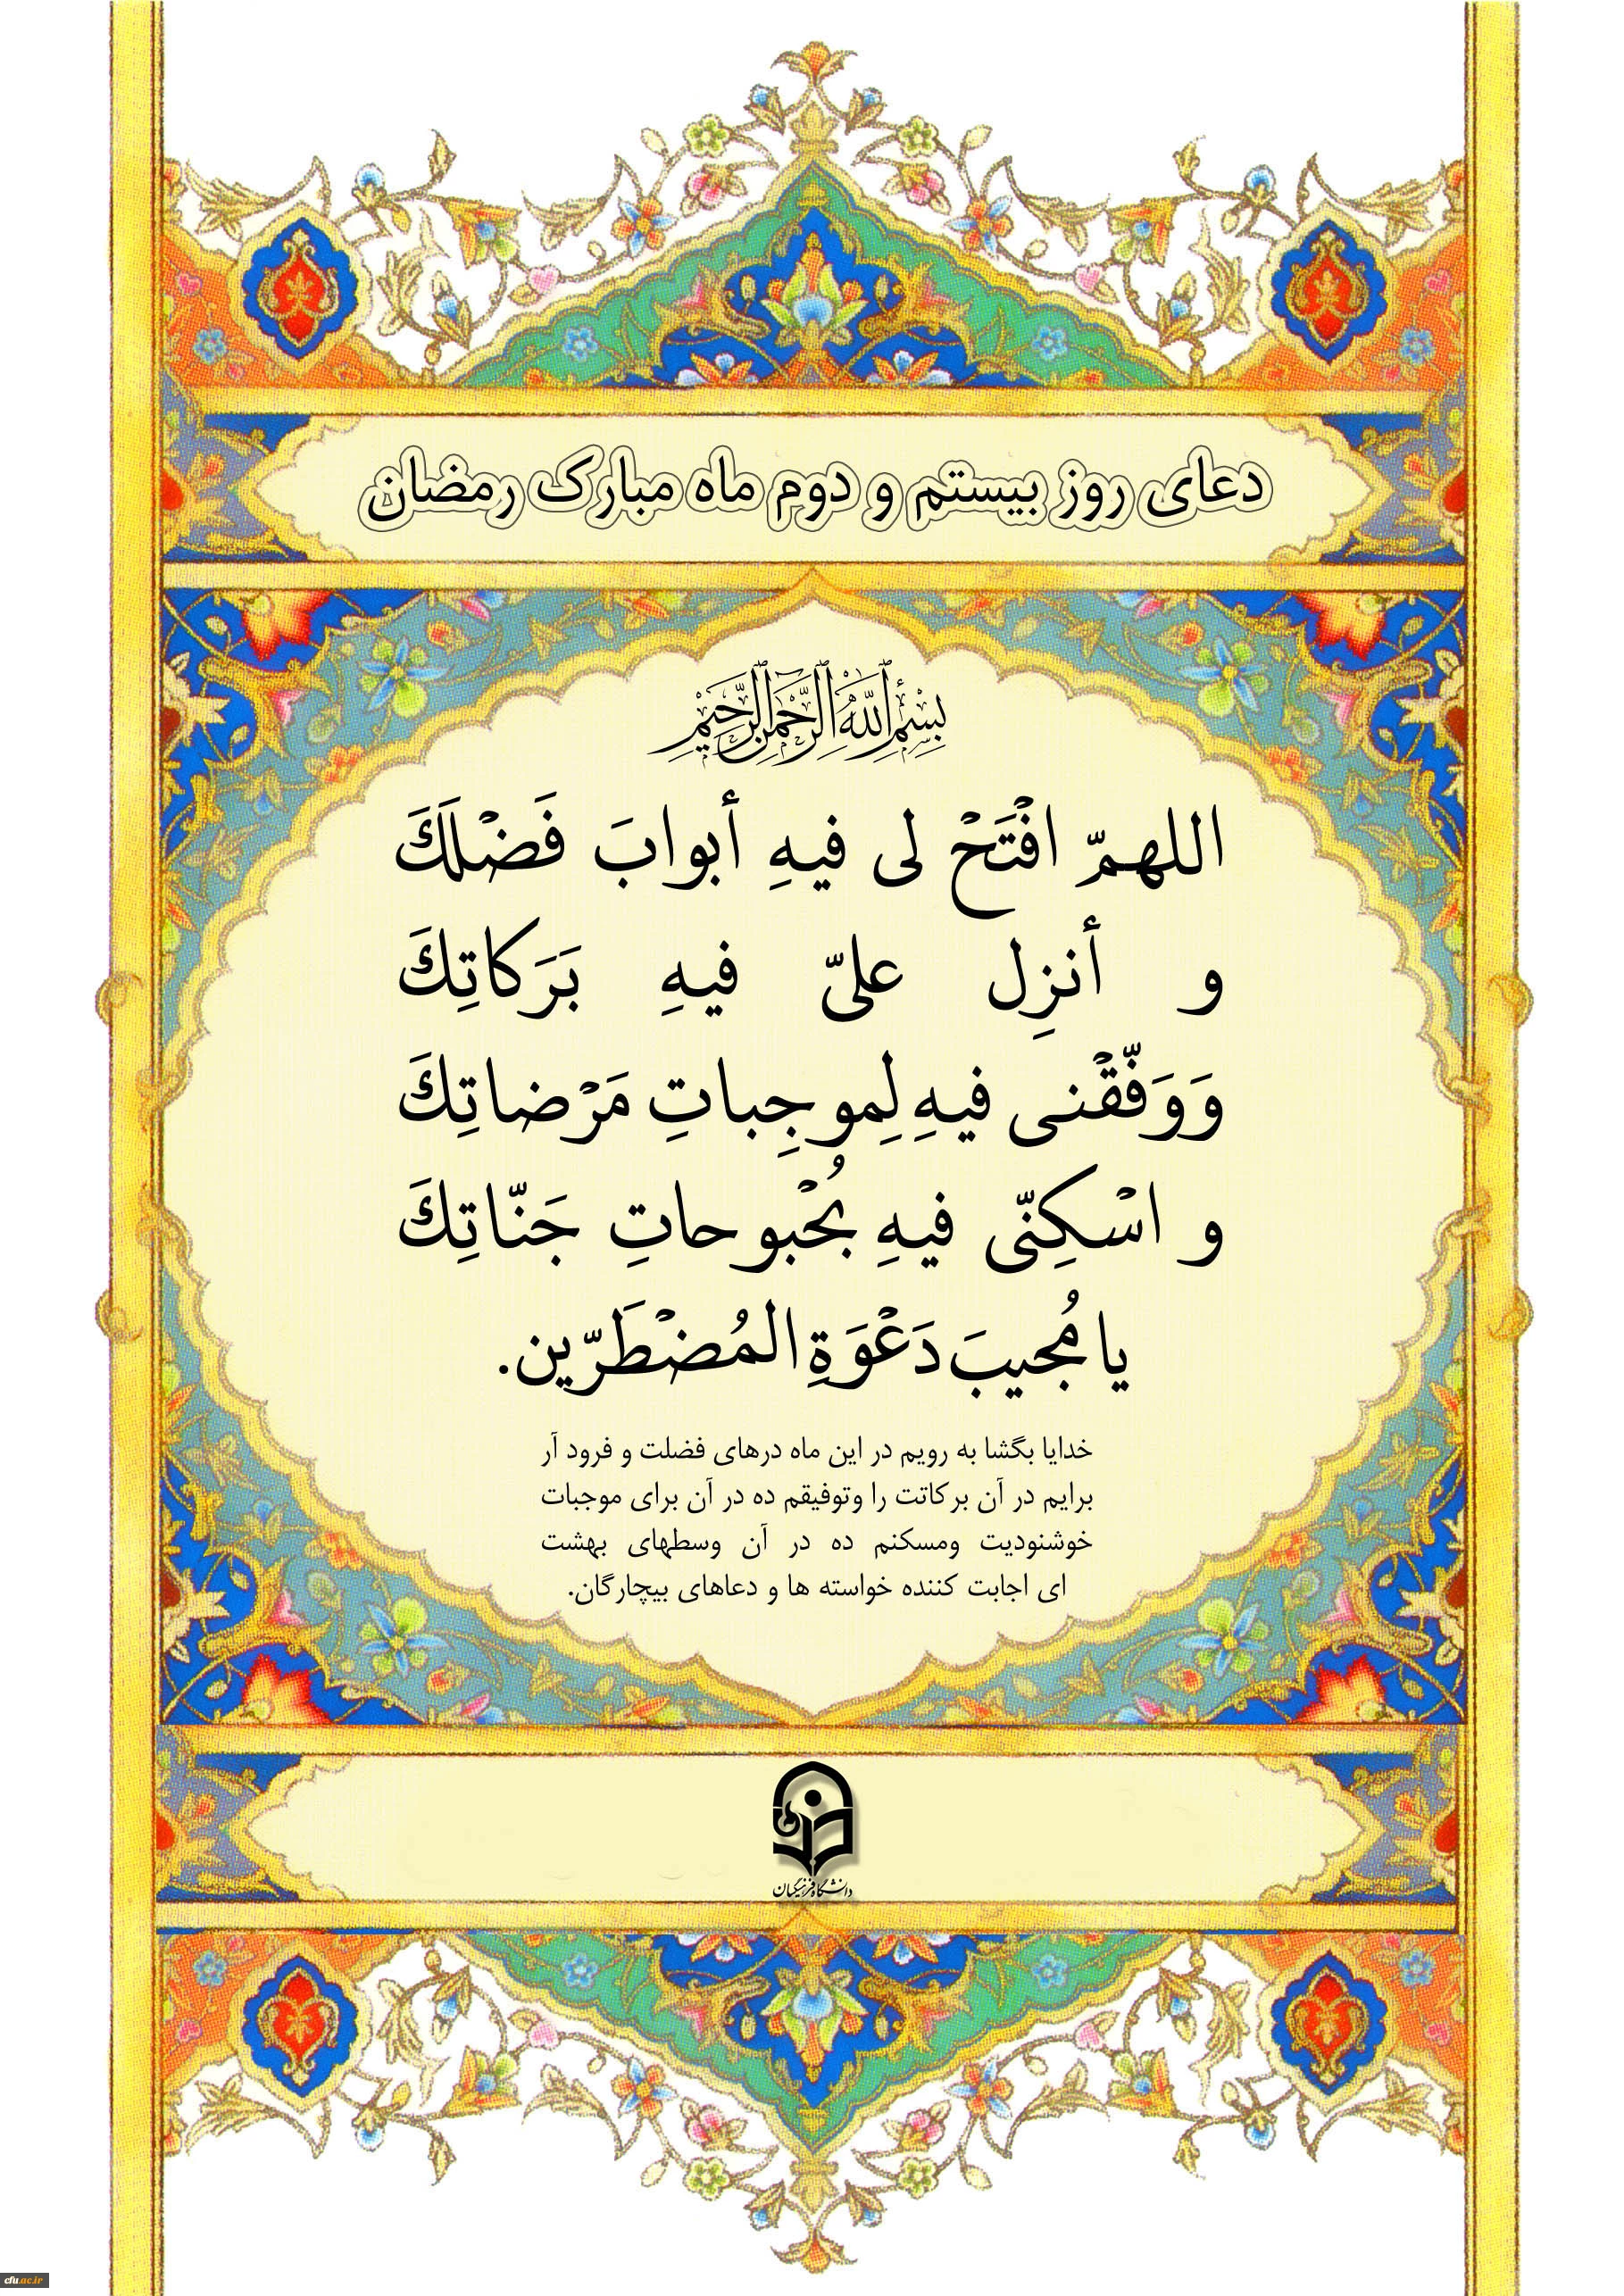 دعای روز بیستم و دوم ماه مبارک رمضان
بِسْمِ ٱللَّهِ ٱلرَّحْمَٰنِ ٱلرَّحِيمِ
اللهمّ افْتَحْ لی فیهِ أبوابَ فَضْلَكَ
و أنزِل علیّ فیهِ بَرَكاتِكَ
وَوَفّقْنی فیهِ لِموجِباتِ مَرْضاتِكَ
و اسْكِنّی فیهِ بُحْبوحاتِ جَنّاتِكَ
یا مُجیبَ دَعْوَةِ المُضْطَرّین.
خدایا بگشا به رویم در این ماه درهای فضلت و فرود آر
برایم در آن برکاتت را وتوفیقم ده در آن برای موجبات
خوشنودیت ومسکنم ده در آن وسطهای بهشت
ای اجابت کننده خواسته ها و دعاهای بیچارگان.
دانشگاه فرهنگیان
cfu.ac.ir